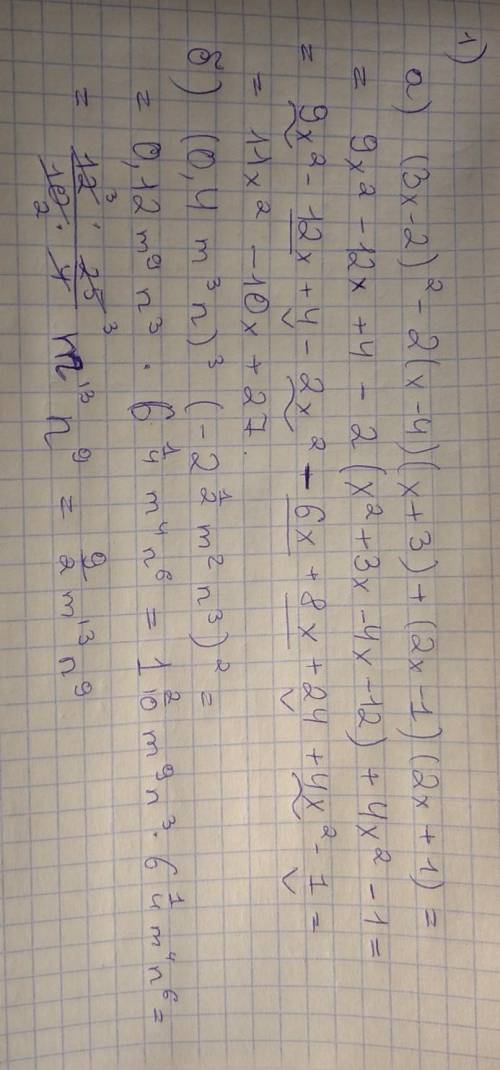 1)
а) (3x-2)² - 2(x-4)(x+3) + (2x-1)(2x+1) =
= 9x² - 12x + 4 - 2(x² + 3x - 4x - 12) + 4x² - 1 =
= 9x² - 12x + 4 - 2x² - 6x + 8x + 24 + 4x² - 1 =
= 11x² - 10x + 27.
б) (0,4 m³n)³ (-2 1/2 m²n³)² =
= 0,12 m⁹n³ · 6 1/4 m⁴n⁶ = 1 2/10 m⁹n³ · 6 1/4 m⁴n⁶ =
= 12³ · 25³ / 10₂ · 4 m¹³n⁹ = 9/2 m¹³n⁹